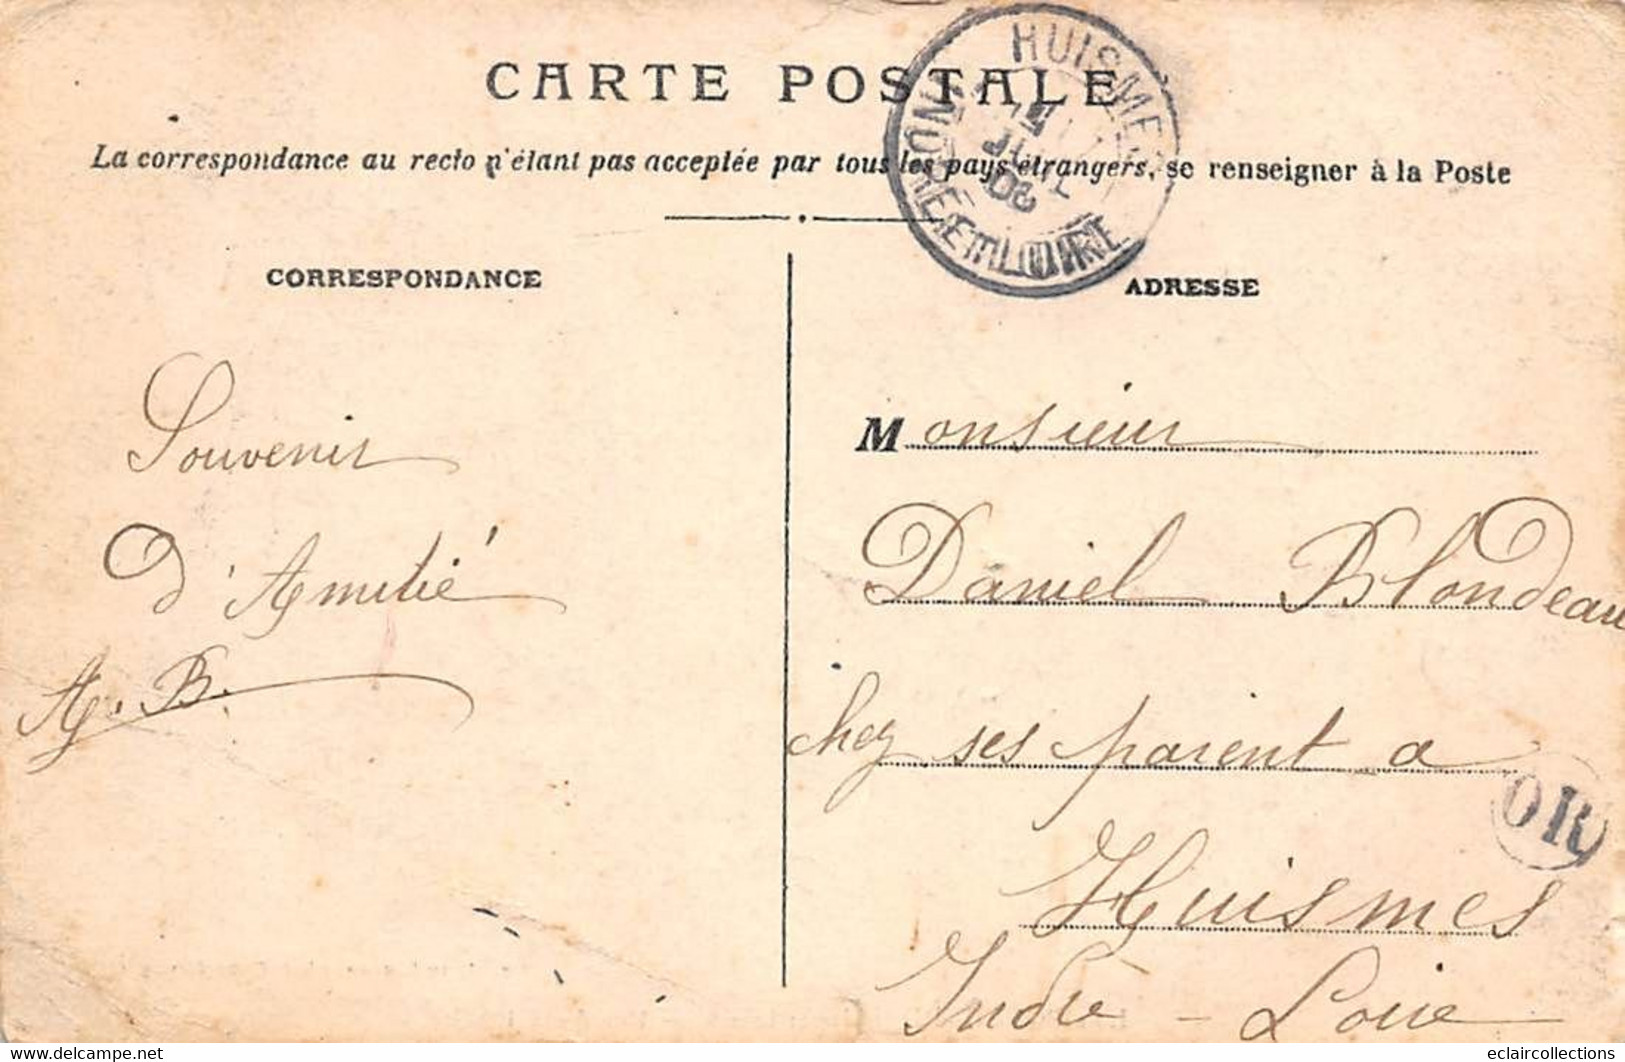 CARTE POSTALE
HUISMES
INDRE ET LOIRE
JUIL
08
La correspondance au recto n'étant pas acceptée par tous les pays étrangers, se renseigner à la Poste
CORRESPONDANCE
ADRESSE
Souvenir
d'Amitié
A. B.
Monsieur
Daniel Blondeau
chez ses parent a
OR
Huismes
Indre - Loire
© delcampe.net
eclaircollections